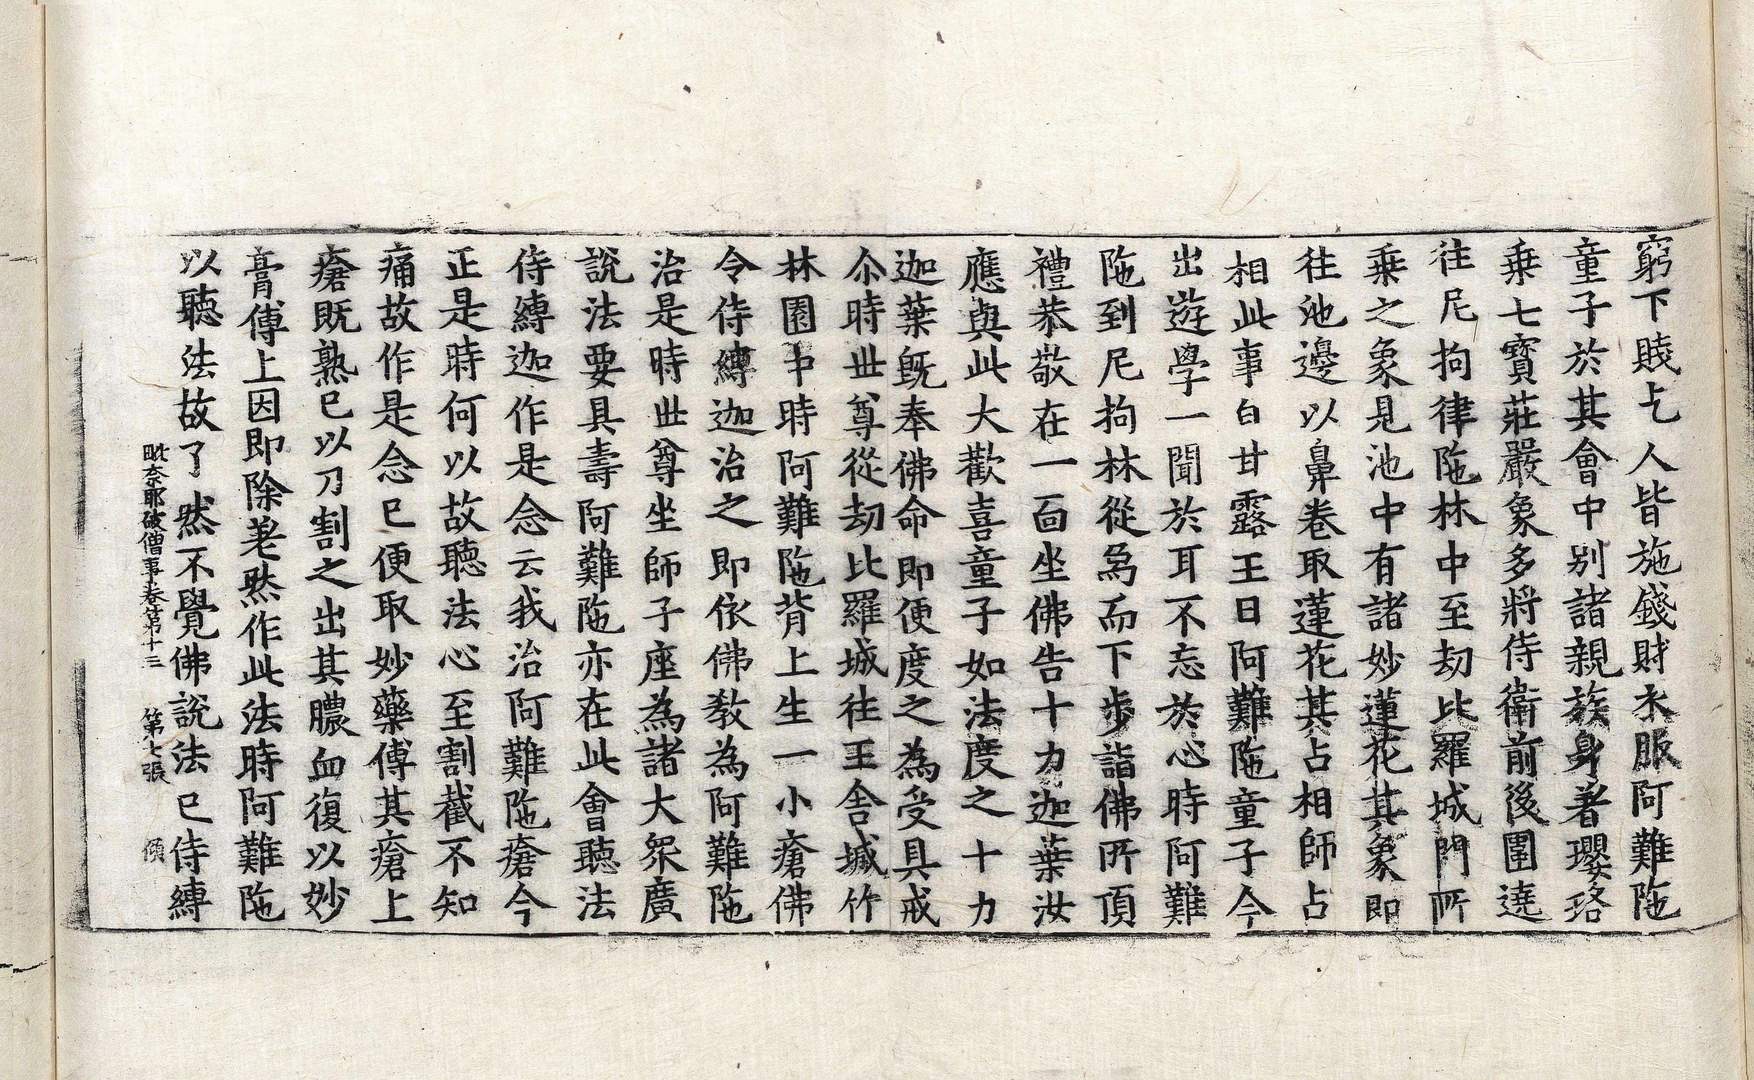 窮下賤乞人皆施錢財衣服阿難陁
童子於其會中別諸親族身著瓔珞
乗七寶莊嚴象多將侍衛前後圍遶
往尼拘律陁林中至劫比羅城門所
乗之象見池中有諸妙蓮花其象即
往池邊以鼻卷取蓮花其占相師占
相此事白甘露王曰阿難陁童子今
出遊學一聞於耳不忘於心時阿難
陁到尼拘林從象而下步詣佛所頂
禮恭敬在一面坐佛告十力迦葉汝
應與此大歡喜童子如法度之十力
迦葉旣奉佛命即便度之為受具戒
尒時世尊從劫比羅城往王舎城竹
林園中時阿難陁背上生一小瘡佛
令侍縛迦治之即依佛教為阿難陁
治是時世尊坐師子座為諸大衆廣
說法要具壽阿難陁亦在此會聽法
侍縛迦作是念云我治阿難陁瘡今
正是時何以故聽法心至割截不知
痛故作是念已便取妙藥傅其瘡上
瘡既熟已以刀割之出其膿血復以妙
膏傅上因即除差然作此法時阿難陁
以聽法故了然不覺佛說法已侍縛
毗奈耶破僧事卷第十三 第七張 傾